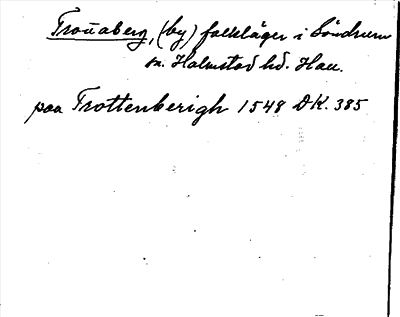 Tronaberg, (by) folkläger i Söndrum
sn. Halmstad hd. Hall.
paa Trottenberigh 1548 DK. 385